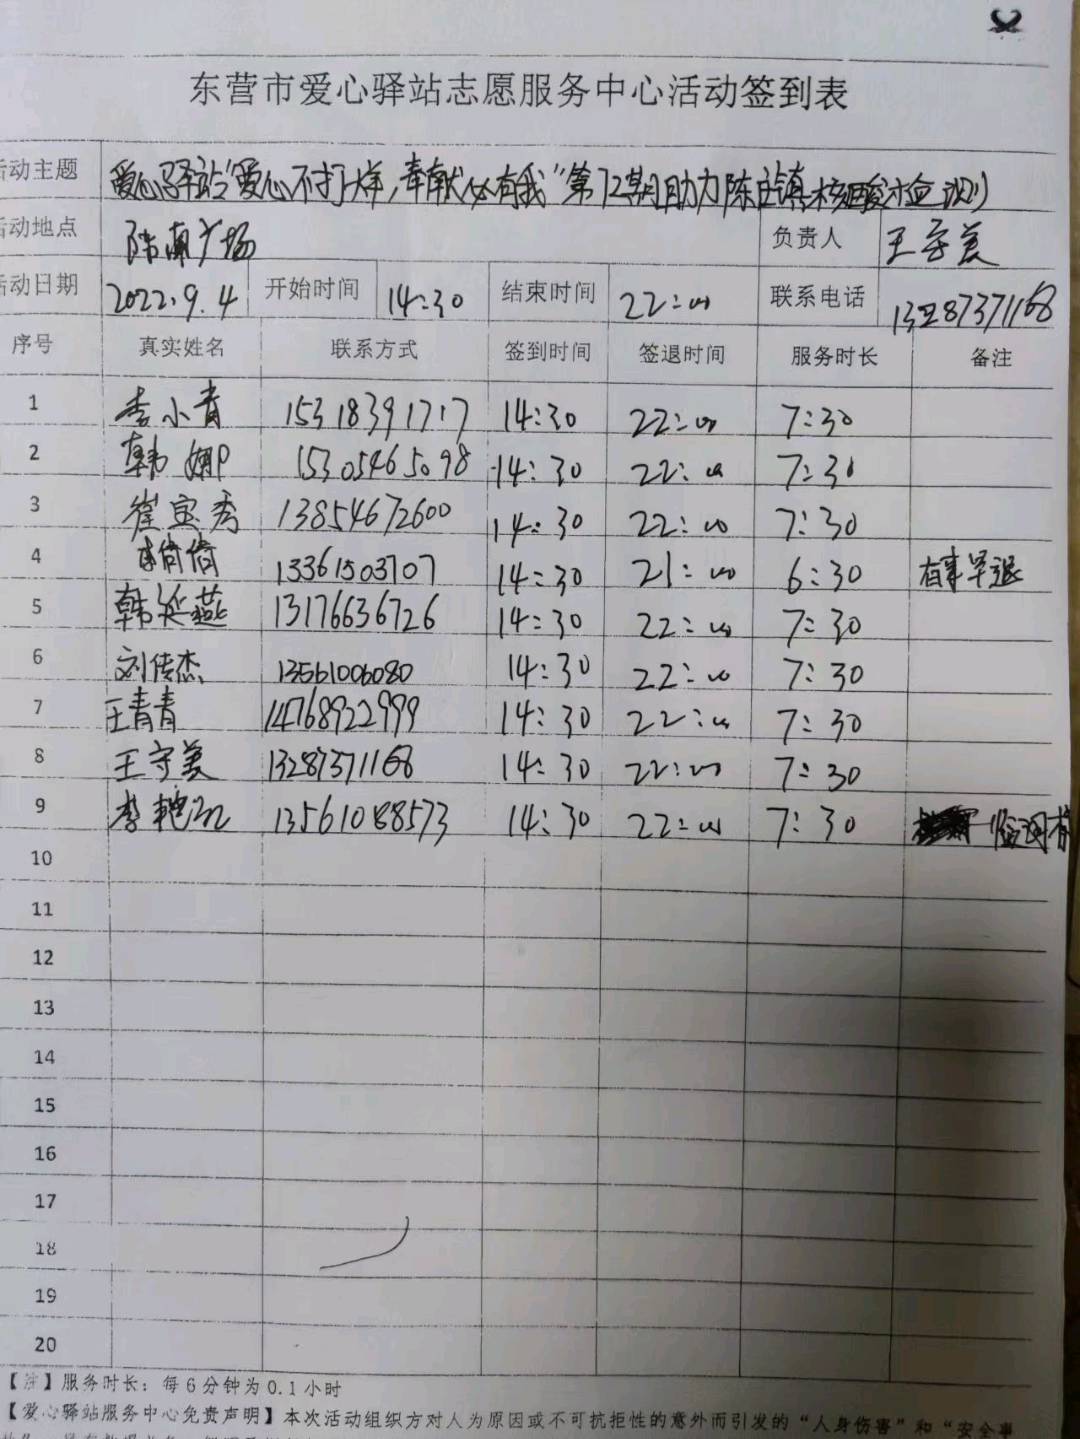 东营市爱心驿站志愿服务中心活动签到表
活动主题 爱心驿站"爱心不打烊,奉献必有我"第72期助力陈庄镇核酸检测
活动地点 广场 负责人 王守美
活动日期 2022.9.4 开始时间 14:30 结束时间 22:00 联系电话 13287371168
序号 真实姓名 联系方式 签到时间 签退时间 服务时长 备注
1 李小青 15318391717 14:30 22:00 7:30
2 韩娜 15305465098 14:30 22:00 7:30
3 崔宝秀 13854672600 14:30 22:00 7:30
4 倩倩 13361503707 14:30 21:00 6:30 有事早退
5 韩延燕 13176636726 14:30 22:00 7:30
6 刘传杰 13561006080 14:30 22:00 7:30
7 王青青 14768922999 14:30 22:00 7:30
8 王守美 13287371168 14:30 22:00 7:30
9 李艳 13561088573 14:30 22:00 7:30
10
11
12
13
14
15
16
17
18
19
20
【注】服务时长:每6分钟为0.1小时
【爱心驿站服务中心免责声明】本次活动组织方对人为原因或不可抗拒性的意外而引发的"人身伤害"和"安全事